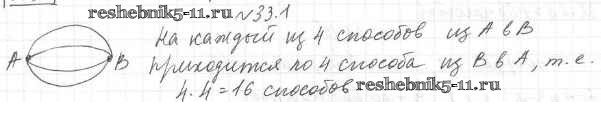 reshebnik5-11.ru
№33.1
На каждый из 4 способов из А в В
А В приходится по 4 способа из В в А, т.е.
4·4=16 способов
reshebnik5-11.ru